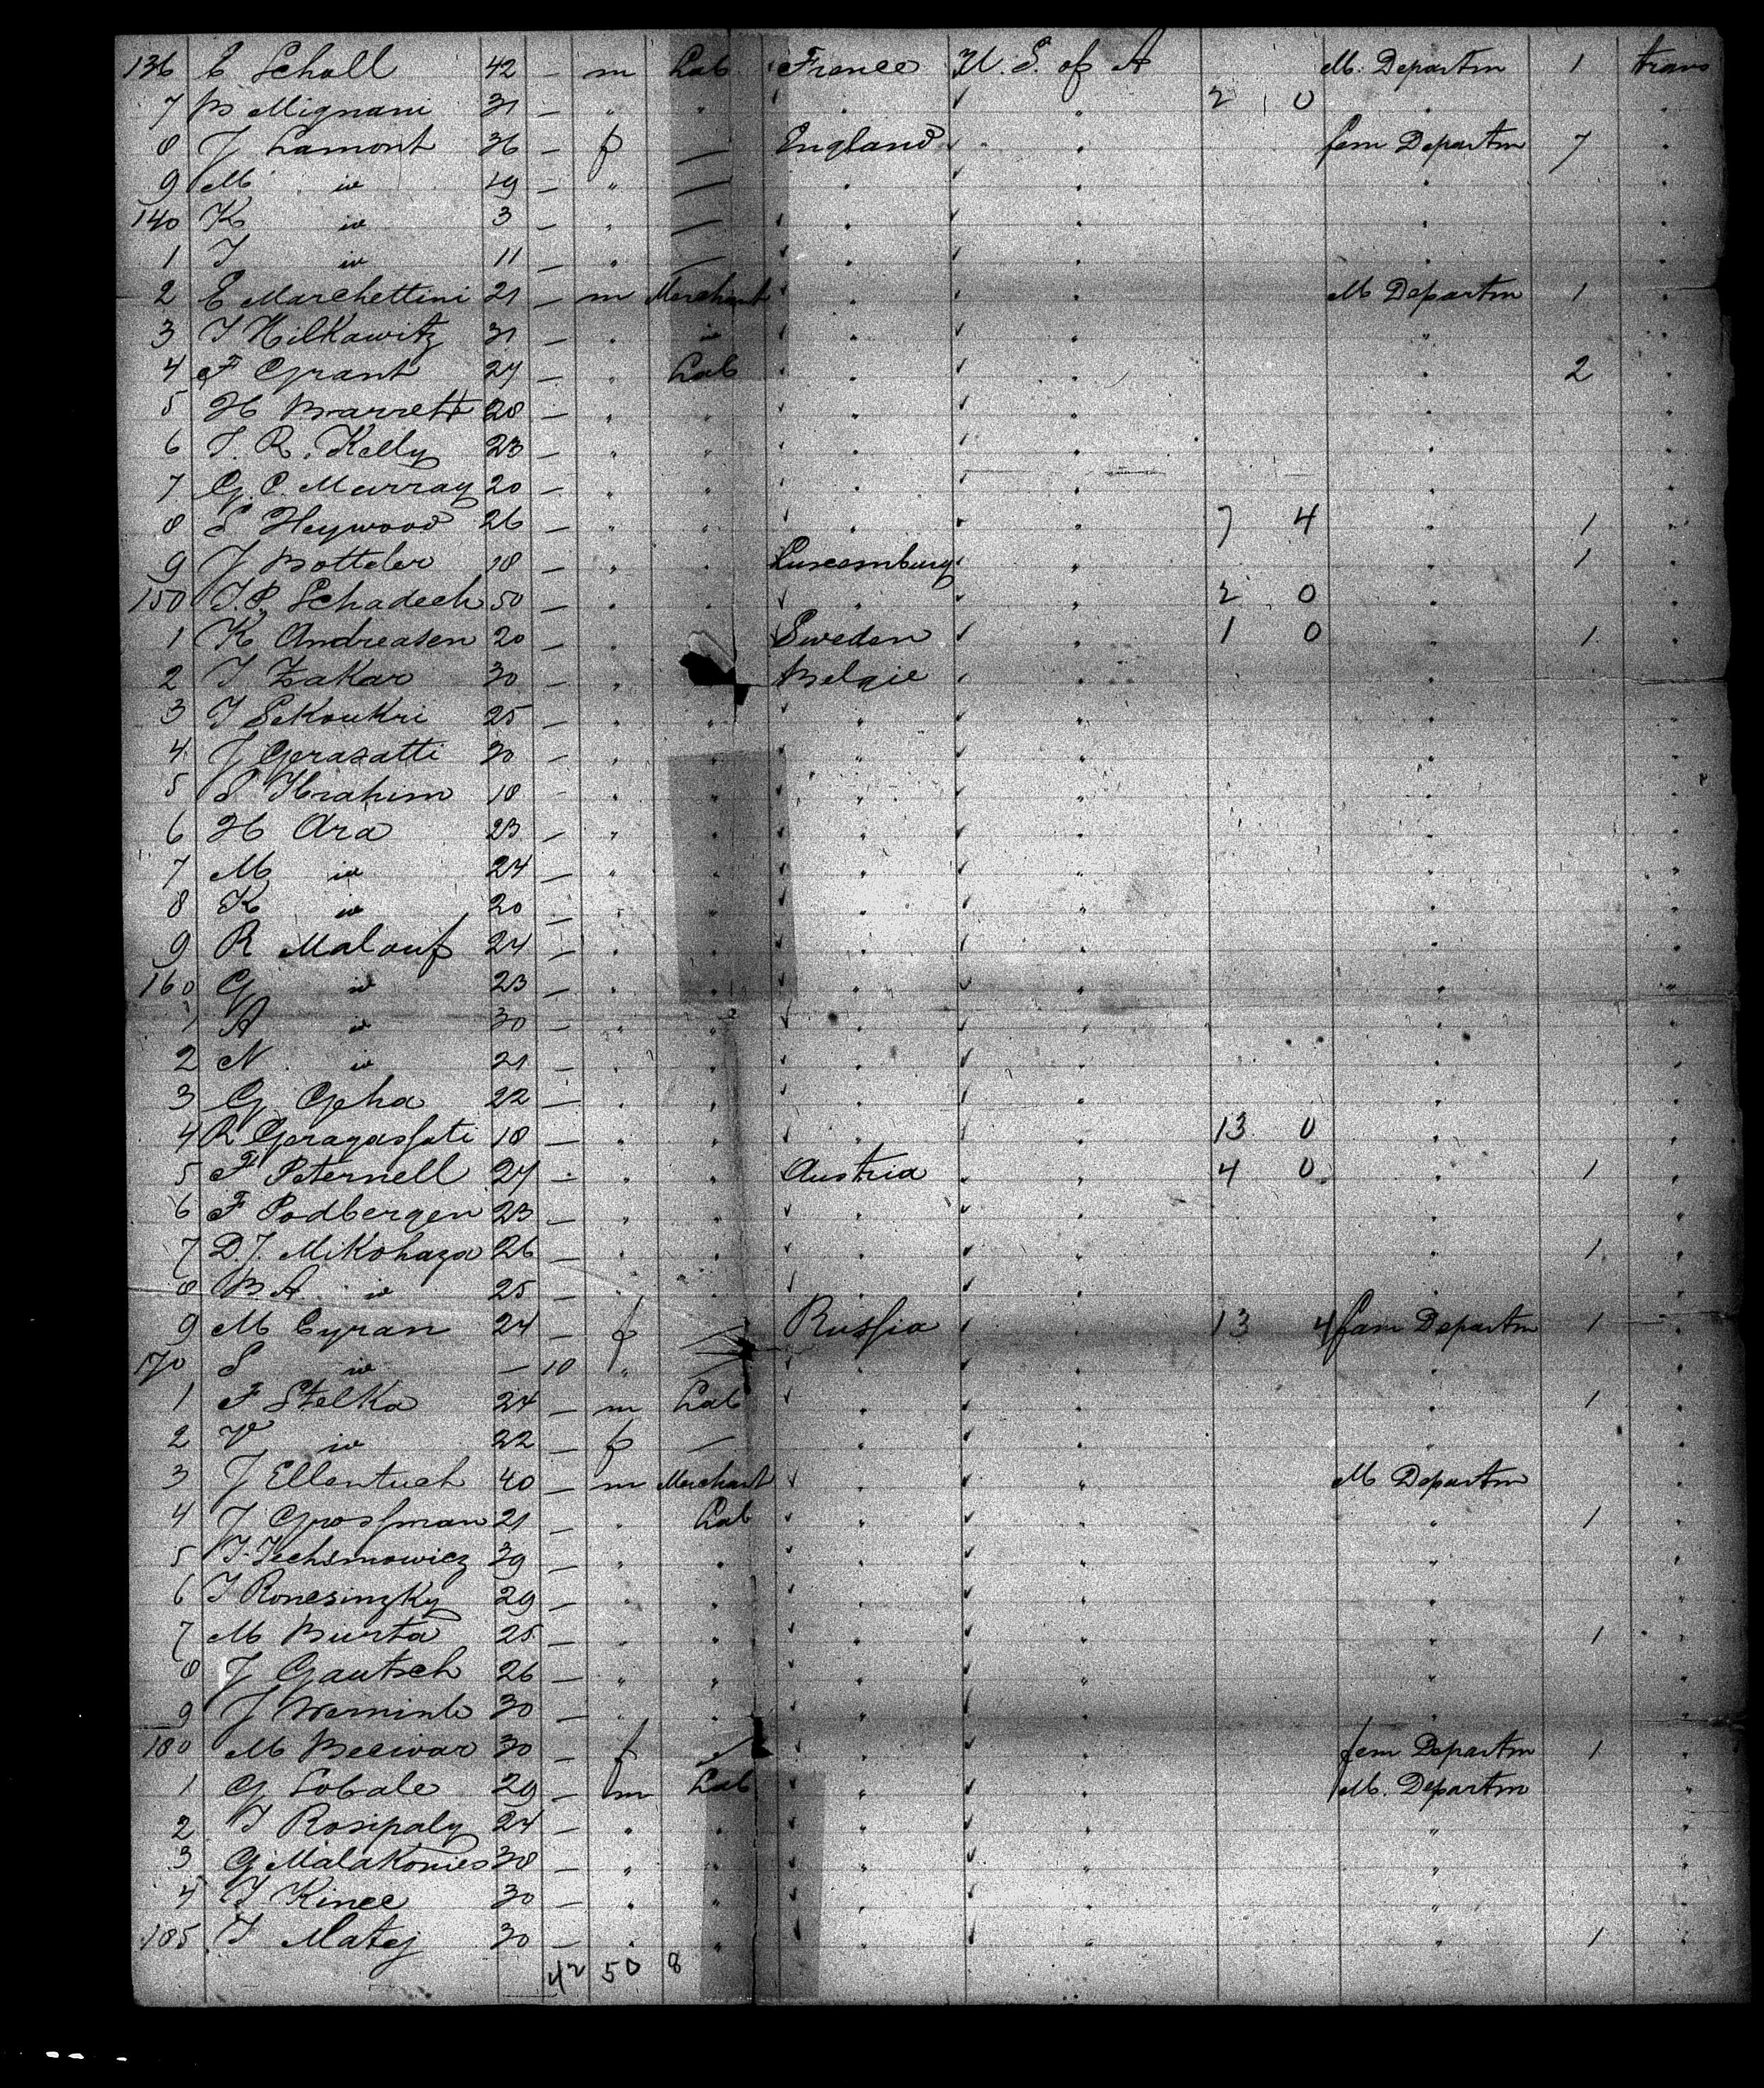 136 E Scholl 42 — m Lab France U. S. of A M. Departm 1 trans
7 B Mignani 31 — " " " " 2 0 " "
8 J Lamont 36 — f — England " fem Departm 7 "
9 M id 19 — " — " " " "
140 K id 3 — " — " " " "
1 J id 11 — " — " " " "
2 E Marchettini 21 — m Merchant " " M Departm 1 "
3 I Hilkawitz 31 — " id " " " "
4 F Grant 27 — " Lab " " " 2 "
5 H Barrett 28 — " " " " " "
6 T. R. Kelly 23 — " " " " " "
7 G. C. Murray 20 — " " " " " "
8 S Heywood 26 — " " " " 7 4 " 1 "
9 J Botteler 18 — " " Luxemburg " " 1 "
150 J. P. Schadech 50 — " " " " 2 0 " "
1 K Andreasen 20 — " Sweden " 1 0 " 1 "
2 I Zakar 30 — " Belgie " " "
3 I Sekoukri 25 — " " " " " "
4 J Gerasatti 30 — " " " " " "
5 S Ibrahim 18 — " " " " " "
6 H Ara 23 — " " " " " "
7 M id 24 — " " " " " "
8 K id 20 — " " " " " "
9 R Malouf 24 — " " " " " "
160 G id 23 — " " " " " "
1 A id 30 — " " " " " "
2 N id 21 — " " " " " "
3 G Geha 22 — " " " " " "
4 R Geragossati 18 — " " " " 13 0 " "
5 F Peternell 27 — " " Austria " 4 0 " 1 "
6 F Podbergen 23 — " " " " " "
7 D. J. Mikohaza 26 — " " " " " 1 "
8 B A id 25 — " " " " " "
9 M Cyran 24 — f — Russia " 13 4 fem Departm 1 "
170 S id — 10 " — " " " "
1 F Stelka 24 — m Lab " " " 1 "
2 V id 22 — f — " " " "
3 J Ellentuch 40 — m Merchant " " M Departm "
4 J Grossman 21 — " Lab " " " 1 "
5 I. Jechsmowicz 39 — " " " " " "
6 I Ronesinzky 29 — " " " " " "
7 M Burta 25 — " " " " " 1 "
8 J Gautsch 26 — " " " " " "
9 J 30 — " " " " " "
180 M Becwar 30 — f — " " fem Departm 1 "
1 G Lobale 29 — m Lab " " M. Departm "
2 I Rosipaly 24 — " " " " " "
3 G Malakonies 38 — " " " " " "
4 I Kinee 30 — " " " " " "
185 I Matej 30 — " " " " " 1 "
42 50 8